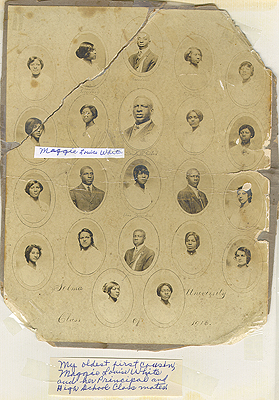 Maggie Louise White
Selma University
Class of 1916.
My oldest first cousin,
Maggie Louise White
and her Principal and
High School Class mates